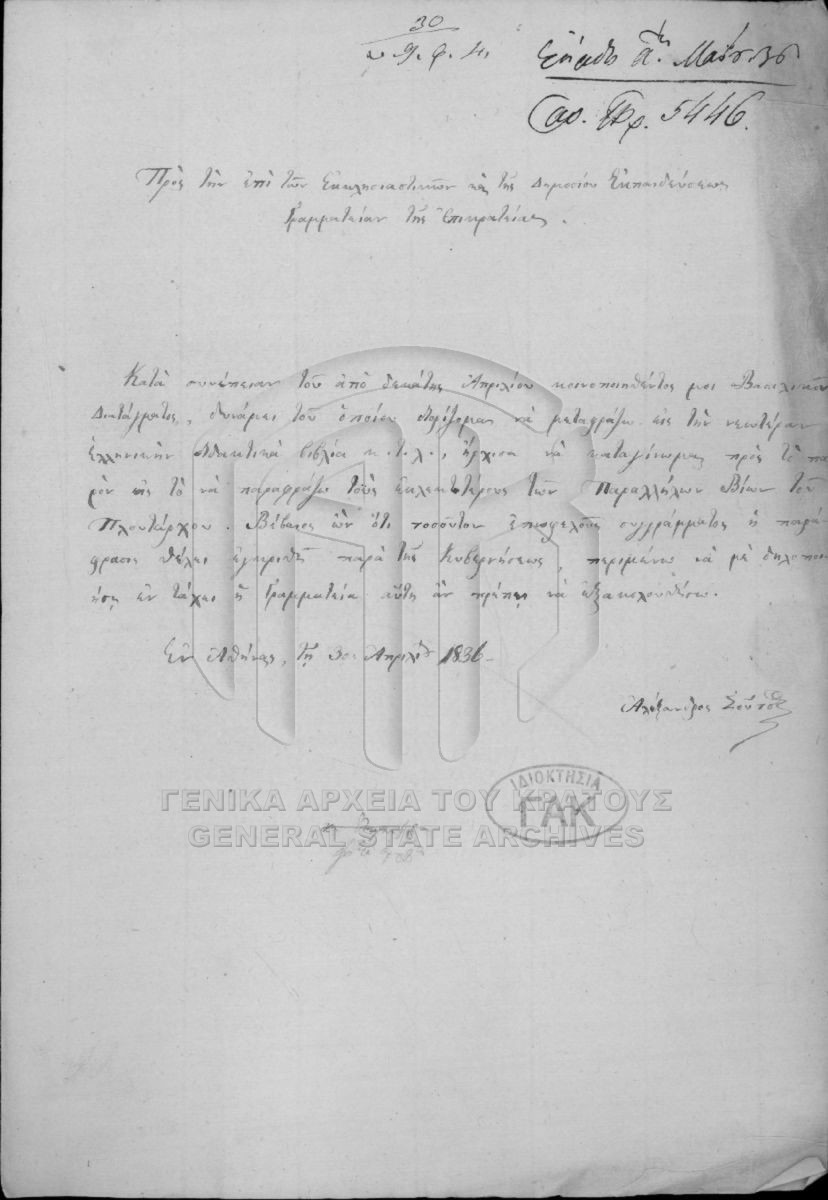 30
Ἐλήφθη αῃ Μαΐου 36
ἀρ. Πρ. 5446.
Πρὸς τὴν ἐπὶ τῶν Ἐκκλησιαστικῶν κὶ τῆς Δημοσίου Ἐκπαιδεύσεως
Γραμματείαν τῆς Ἐπικρατείας.
Κατὰ συνέπειαν τοῦ ἀπὸ δεκάτης Ἀπριλίου κοινοποιηθέντος μοι Βασιλικοῦ
Διατάγματος, δυνάμει τοῦ ὁποίου διορίζομαι νὰ μεταφράζω εἰς τὴν νεωτέραν
Ἑλληνικὴν διδακτικὰ βιβλία κ.τ.λ., ἤρχισα νὰ καταγίνωμαι πρὸς τὸ πα
ρὸν εἰς τὸ νὰ παραφράζω τοὺς ἐκλεκτοτέρους τῶν Παραλλήλων Βίων τοῦ
Πλουτάρχου. Βέβαιος ὢν ὅτι τοσοῦτον ἐπωφελοῦς συγγράμματος ἡ παρά
φρασις θέλει ἐγκριθῆ παρὰ τῆς Κυβερνήσεως, περιμένω νὰ μὲ δηλοποι
ήσῃ ἐν τάχει ἡ Γραμματεία αὕτη ἂν πρέπῃ νὰ ἐξακολουθήσω.
Ἐν Ἀθήναις, τῇ 30 Ἀπριλίου 1836
Ἀλέξανδρος Σοῦτσος
ΙΔΙΟΚΤΗΣΙΑ
ΓΑΚ
ΓΕΝΙΚΑ ΑΡΧΕΙΑ ΤΟΥ ΚΡΑΤΟΥΣ
GENERAL STATE ARCHIVES